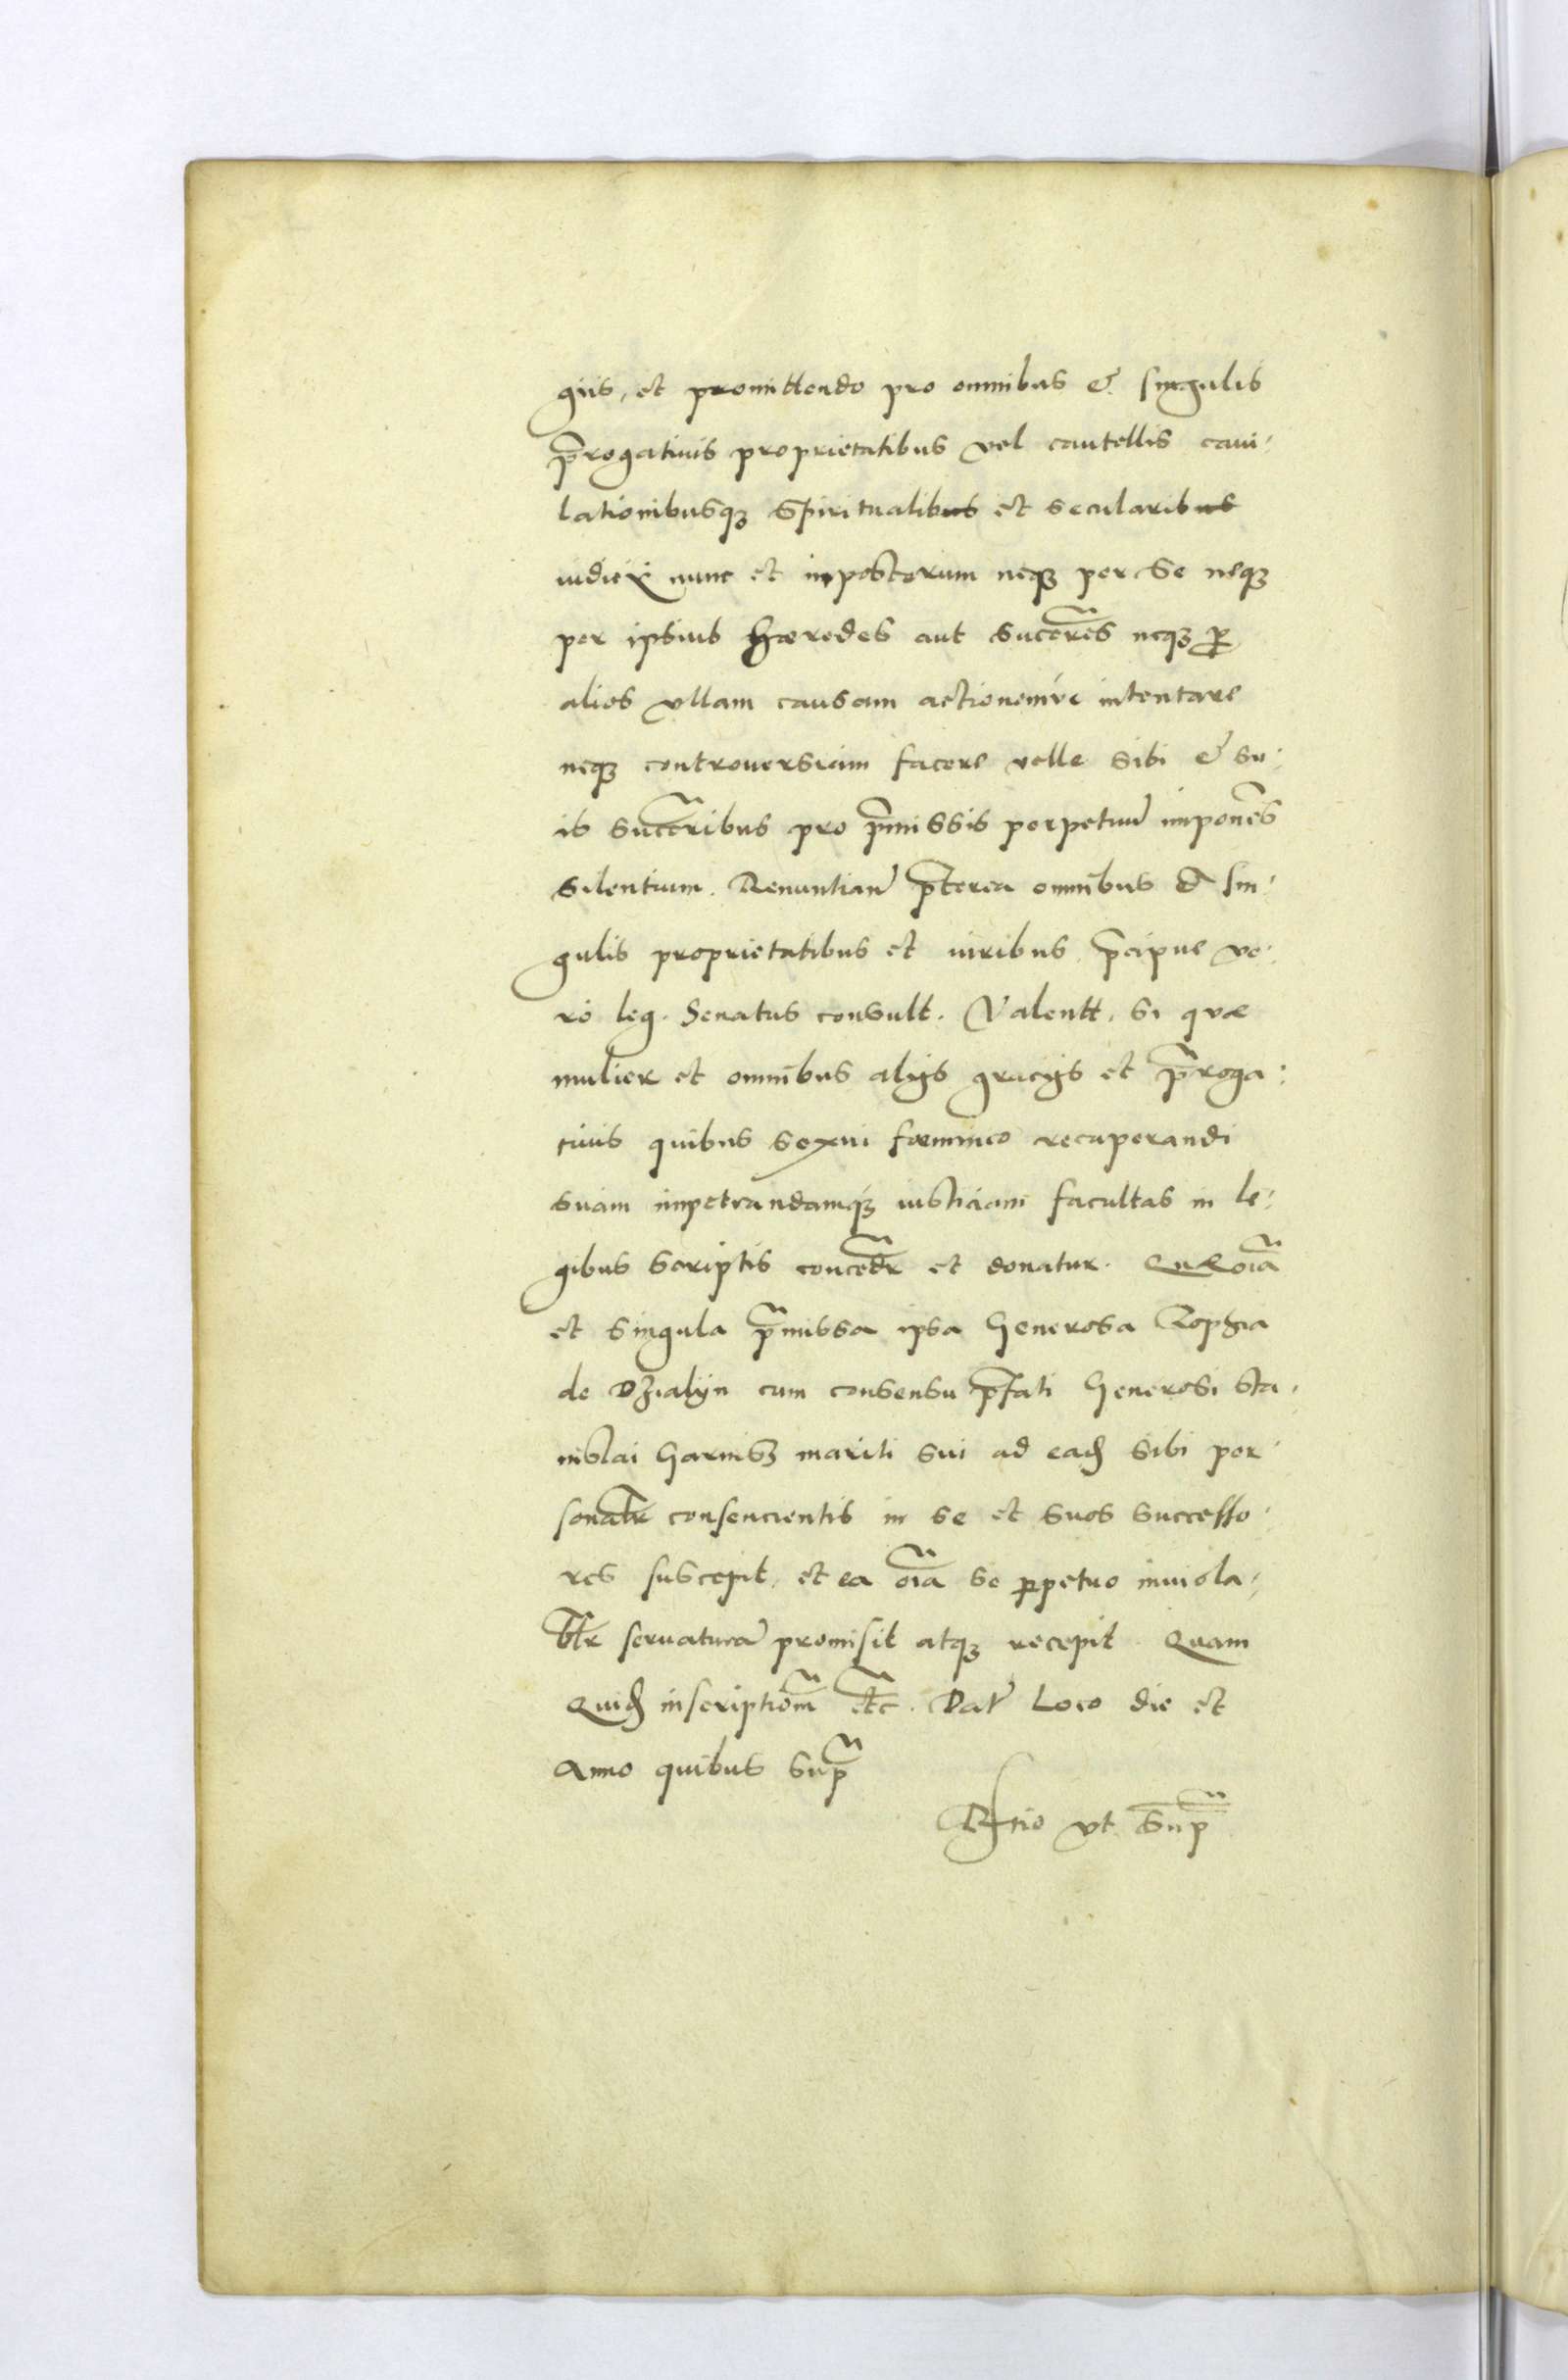 giis, et promittendo pro omnibus & singulis
p̄rogativis proprietatibus vel cautellis cavi-
lationibusqꝫ Spiritualibus et secularibus
nunc et inposterum neqꝫ per se neqꝫ
per ipsius Hæredes aut succ̄res neqꝫ ꝑ
alios vllam causam actionemve intentare
neqꝫ controuersiam facere velle sibi & su-
is succ̄oribus pro p̄missis perpetuū imponēs
silentium. Renuntian̄ p̄terea omnibus & sin-
gulis proprietatibus et iuribus p̄cipue ve-
ro leg. Senatus consult. Valentt. si quæ
mulier et omnibus alijs gracijs et p̄roga-
tiuis quibus sexui fœmineo recuperandi
suam impetrandamqꝫ iusticiam facultas in le-
gibus scriptis conced̄r et donatur. Quæ oīa
et singula p̄missa ipsa Generosa Zophia
de Dzialyn cum consensu p̄fati Generosi Sta-
nislai Garnisz mariti sui ad eadꝫ sibi per-
sonalr̄ consencientis in se et suos successo-
res suscepit, et ea oīa se ꝑpetuo inuiola-
blr̄ seruaturā promisit atqꝫ recepit. Quam
Quidꝫ inscriptiom̄ etc̄. Dat̄ Loco die et
Anno quibus sup̄
vt sup̄